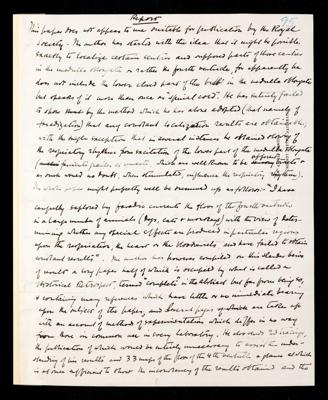 Report
95
This paper does not appear to me suitable for publication by the Royal
Society. The author has started with the idea that it might be possible
exactly to localize certain centres and supposed parts of these centres
in the medulla oblongata or rather the fourth ventricle, for apparently he
does not include the lower closed part of the bulb in the medulla oblongata
but speaks of it more than once as "spinal cord". He has entirely failed
to show that by the method which he has alone adopted (that namely of
faradization) that any constant localization results are obtainable,
with the single exception that in several instances he obtained slowing of
the respiratory rhythm from excitation of the lower part of the medulla oblongata
which are well known to be
as indeed would no doubt, when stimulated, influence the respiratory rhythm).
The whole paper might properly well be summed up as follows: "I have
carefully explored by faradic currents the floor of the fourth ventricle
in a large number of animals (dogs, cats & monkeys) with the view of deter-
mining whether any special effects are produced in particular regions
upon the respiration, the heart or the bloodvessels, and have failed to obtain
constant results". The author has however compiled on this slender basis
of results a long paper half of which is occupied by what is called a
Historical Retrospect, termed "complete" in the abstract but far from being so,
& containing many references which have little or no immediate bearing
upon the subject of the paper, and several pages of which are taken up
with an account of methods of experimentation which differ in no way
from those in common use in every laboratory. He also sends 20 tracings,
the publication of which would be entirely unnecessary to assist the under-
standing of his results and 33 maps of the floor of the 4th ventricle a glance at which
is at once sufficient to show the inconstancy of the results obtained and the